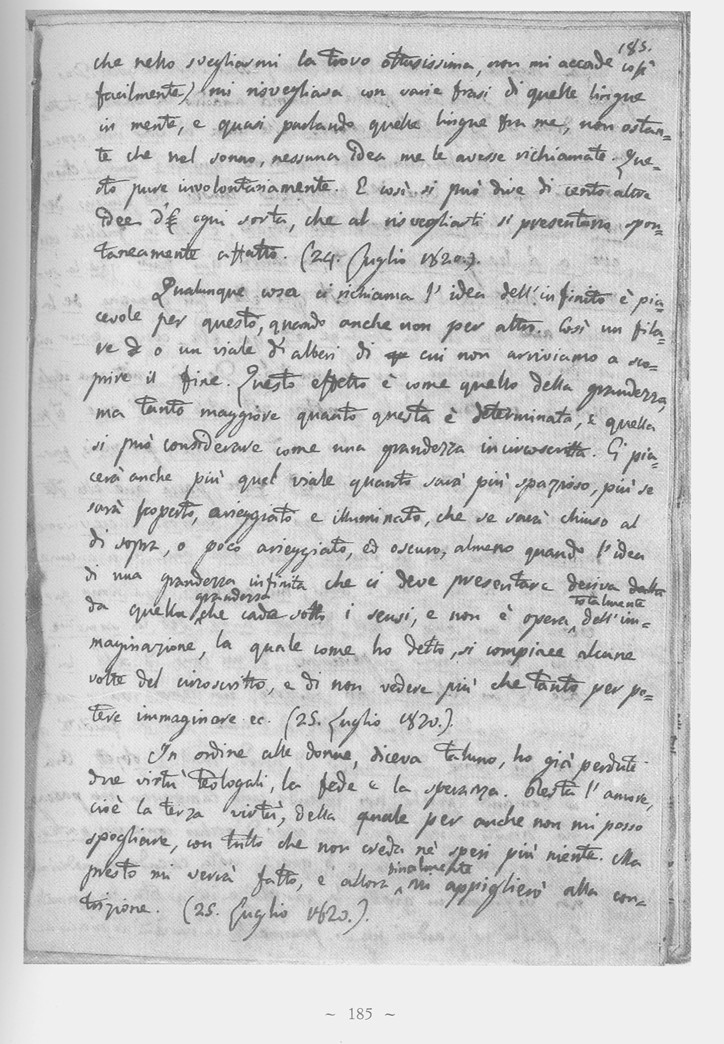 185.
che nello svegliarmi la trovo ottusissima, non mi accade così
facilmente) mi risvegliava con varie frasi di quelle lingue
in mente, e quasi parlando quelle lingue fra me, non ostan-
te che nel sonno, nessuna idea me le avesse richiamate. Que-
sto pure involontariamente. E così si può dire di cento altre
idee d' ogni sorta, che al risvegliarti si presentano spon-
taneamente affatto. (24. Luglio 1820.).
Qualunque cosa ci richiama l'idea dell'infinito è pia-
cevole per questo, quando anche non per altro. Così un fila-
re o un viale d'alberi di cui non arriviamo a sco-
prire il fine. Questo effetto è come quello della grandezza,
ma tanto maggiore quanto questa è determinata, e quella
si può considerare come una grandezza incircoscritta. Ci pia-
cerà anche più quel viale quanto sarà più spazioso, più se
sarà scoperto, arieggiato e illuminato, che se sarà chiuso al
di sopra, o poco arieggiato, ed oscuro, almeno quando l'idea
di una grandezza infinita che ci deve presentare deriva dalla
da quella grandezza che cade sotto i sensi, e non è opera totalmente dell'im-
maginazione, la quale come ho detto, si compiace alcune
volte del circoscritto, e di non vedere più che tanto per po-
tere immaginare ec. (25. Luglio 1820.).
In ordine alle donne, diceva taluno, ho già perdute
due virtù teologali, la fede e la speranza. Resta l'amore,
cioè la terza virtù, della quale per anche non mi posso
spogliare, con tutto che non creda nè speri più niente. Ma
presto mi verrà fatto, e allora finalmente mi appiglierò alla con-
trizione. (25. Luglio 1820.).
~ 185 ~